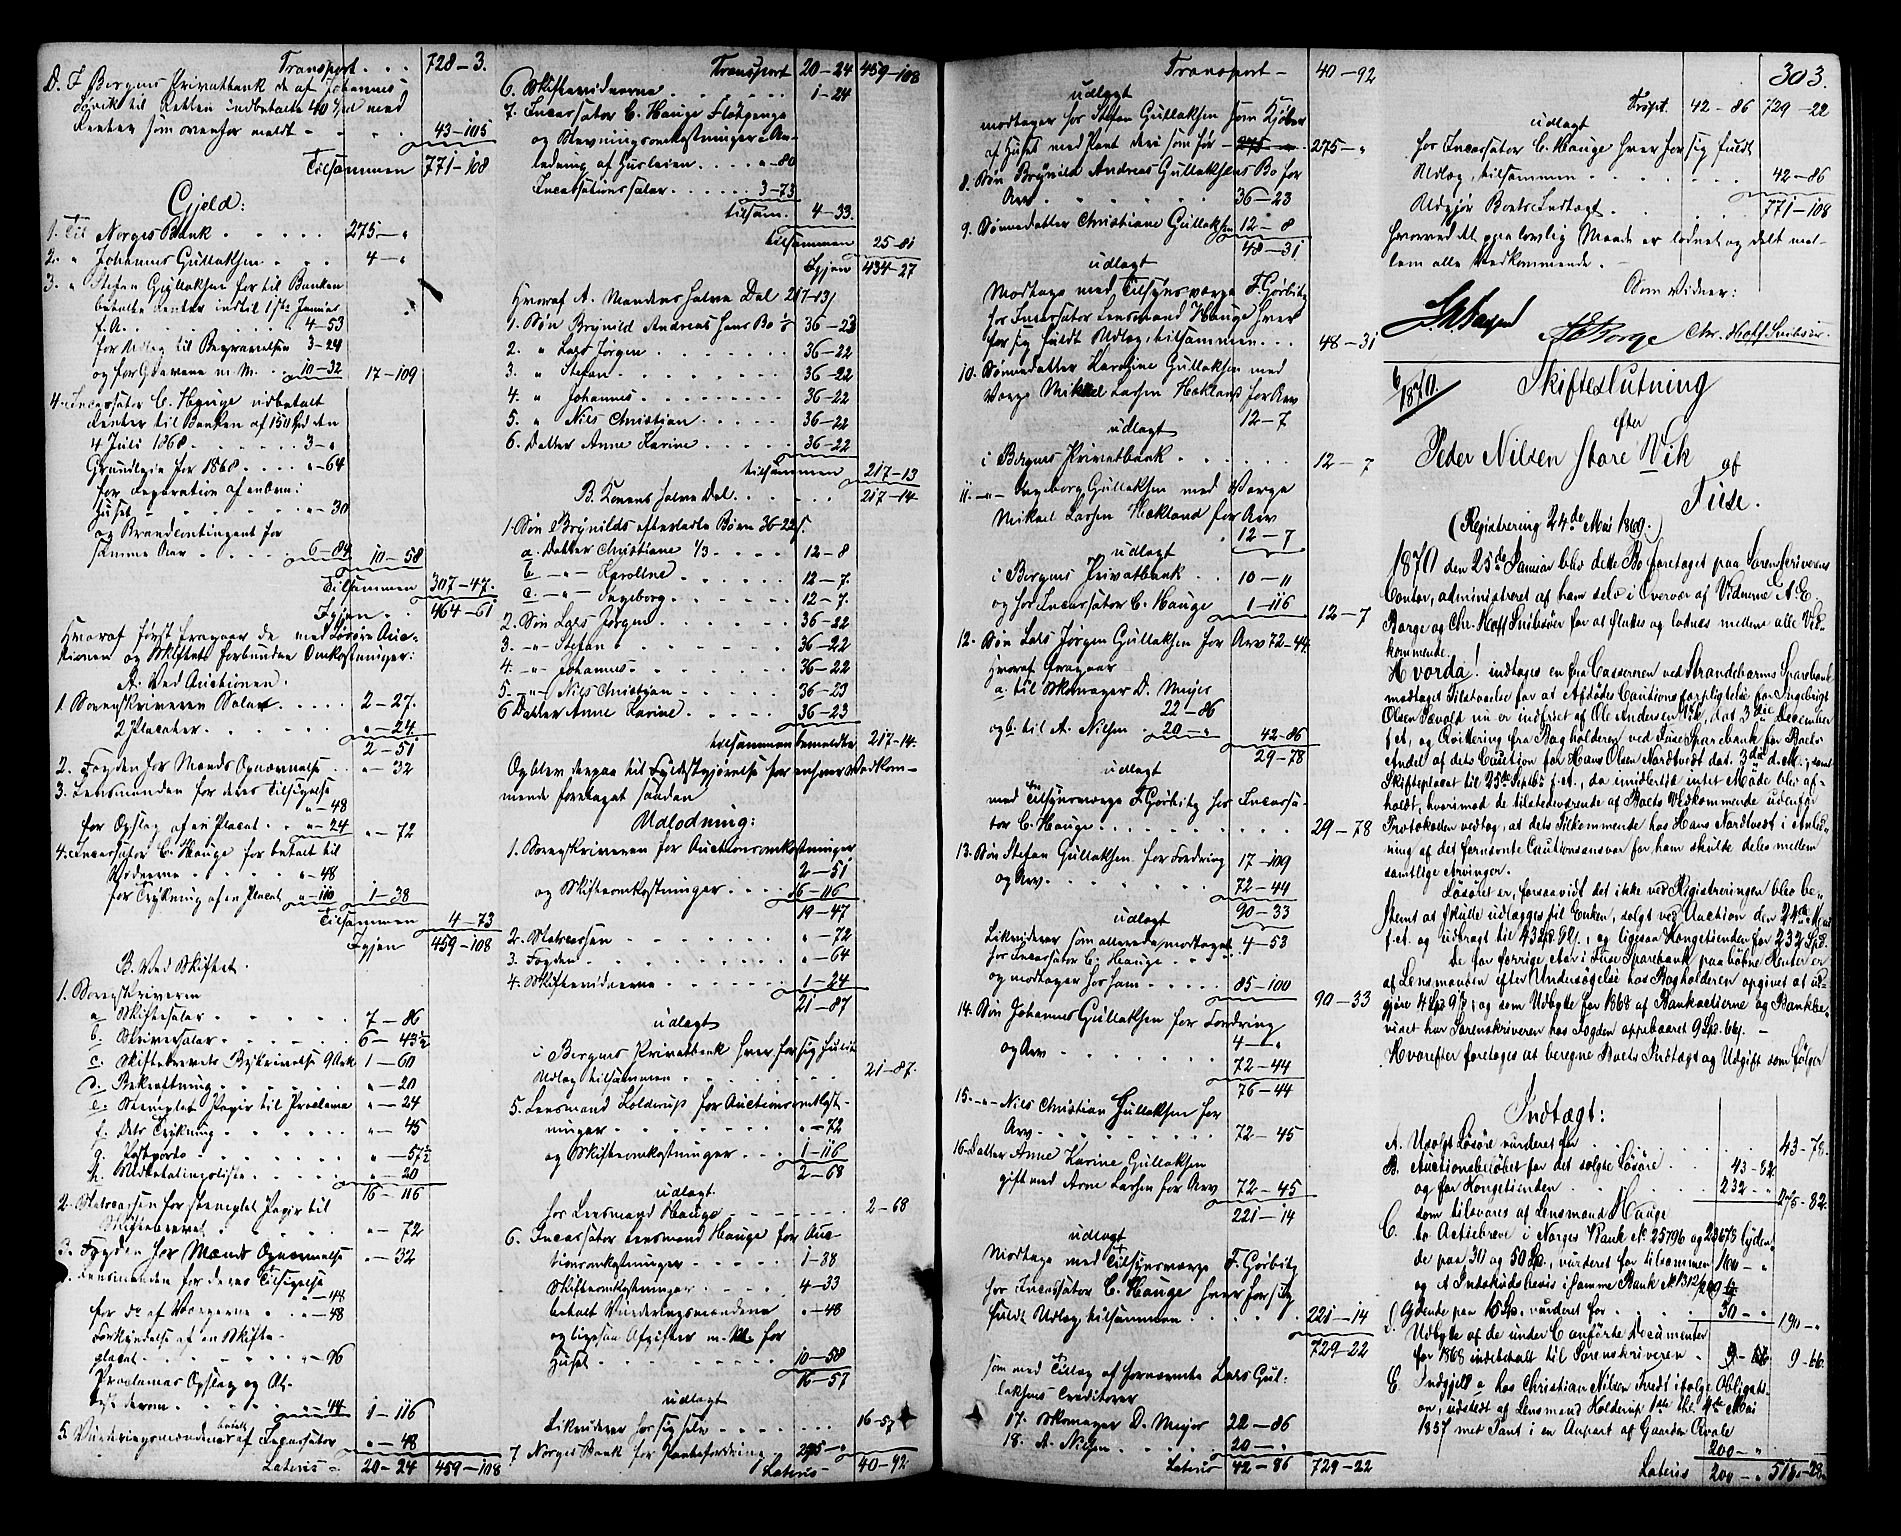 Transport . . . 728-3.
D. I Bergens Privatbank de af Johannes
Lervik til Retten indbetalte 40 Spd med
Renter som ovenfor meldt - 43-105
Tilsammen 771-108
Gjeld:
1. Til Norges Bank . . . . . 275-"
2. " Johannes Gullaksen . . . 4-"
3. " Stefan Gullaksen for til Banken
betalte Renter indtil 1ste Januar
f.A. . . . . 4-53
for Udlæg til Begravelsen 3-24
og for Gravene m. M. . . 10-32 17-109
4. Incassator C. Hauge udbetalt
Renter til Banken af 150 Spd den
4 Juli 1868 . . . . . 3-"
Grundleie for 1868 . . . . "-64
for Reparation af en Ovn i
Huset - - - - "-30
og Brandcontingent for
samme Aar . . . . 6-84 10-58
Tilsammen 307-47.
Igjen . 464-61
Hvoraf først fragaar de med Løsøre Auc-
tionen og Skiftets forbundne Omkostninger:
A. Ved Auctionen.
1. Sorenskriveren Salær . . . . 2-27.
2 Placater . . . . . "-24
2-51
2. Fogden for Mænds Opnævnelse . "-32
3. Lensmanden for deres Tilsigelse
"-48
for Opslag af en Placat . . "-24 "-72
4. Incassator C. Hauge for betalt til
Vidnerne . . . . . "-48
for Trykning af en Placat "-110 1-38
Tilsammen 4-73
Igjen 459-108
B. Ved Skiftet.
1. Sorenskriveren
a. Skiftesalær . . . . . 7-86
b. Skriversalær . . . . 6-43½
c. Skiftebrevets Beskrivelse 9 Ark 1-60
d. Bekræftning . . . . . "-20
e. Stemplet Papir til Proclama "-24
f. Dets Trykning . . . . . "-45
g. Postporto . . . . . "-57½
h. . . . . "-20
16-116
2. Statscassen for stemplet Papir til
Skiftebrevet . . . . "-72
3. Fogden for Mænds Opnævnelse "-32
4. Lensmanden for deres Tilsigelse
"-48
for do af Værgerne . . "-48
Forkyndelse af en Skifte-
placat . . . . . "-96
Proclamas Opslag og At-
test derom . . . . "-44 1-116
5. Vurderingsmændene af Incassator betalt "-48
Lateris . 20-24 459-108
Transport 20-24 459-108
6. Skiftevidnerne . . . . . 1-24
7. Incassator C. Hauge Flötpenge
og Stevningsomkostninger i An-
ledning af Husleien . . . . "-80
Incassationssalær . . . . . 3-73
tilsam. 4-33.
tilsammen 25-81
Igjen 434-27
Hvoraf A. Mandens halve Del 217-13½
1. Søn Brynild Andreas hans Bo 36-23
2. " Lars Jørgen . . . . . . 36-22
3. " Stefan . . . . . . 36-22
4. " Johannes . . . . . . 36-22
5. " Nils Christian . . . . . 36-22
6. Datter Anne Karine . . . . 36-22
tilsammen 217-13
B. Konens halve Del . . . . . . 217-14.
1. Søn Brynilds efterladte Børn 36-22 ß.
a. Datter Christiane 1/3 . . . 12-8
b. -"- Karoline . . . . . 12-7.
c. -"- Ingeborg . . . . . 12-7.
2. Søn Lars Jørgen . . . . . 36-22
3. -"- Stefan . . . . . . 36-22
4. -"- Johannes . . . . . . 36-22
5. -"- Nils Christian . . . . . 36-23
6 Datter Anne Karine . . . . . 36-23
tilsammen bemeldte 217-14.
Og blev derpaa til Fyldestgjørelse for enhver Vedkom-
mende foretaget saadan
Udlodning:
1. Sorenskriveren for Auctionsomkostninger
2-51
og Skifteomkostninger . . . . 16-116
19-47
2. Statscassen . . . . . "-72
3. Fogden . . . . . . "-64
4. Skiftevidnerne . . . . . 1-24
21-87
udlagt
i Bergens Privatbank hver for sig fuldt
Udlæg tilsammen . . . . . . 21-87.
5. Lensmand Holderup for Auctionsomkost-
ninger . . . . . . "-72
og Skifteomkostninger . . . 1-116
2-68
udlagt
hos Lensmand Hauge . . . . . 2-68
6. Incassator Lensmand Hauge for Auc-
tionsomkostninger . . . . 1-38
Skifteomkostninger . . . . 4-33
betalt Vurderingsmændene "-48
og ligesaa Afgifter m. M. for
Huset . . . . . . 10-58
16-57
udlagt
Likviderer hos sig selv . . . . . . 16-57
7 Norges Bank for Pantefordring 275-"
Lateris - 40-92
Transport - 40-92
udlagt
modtager hos Stefan Gullaksen som Kjøber
af Huset med Pant deri som før - 275-"
8. Søn Brynild Andreas Gullaksens Bo for
Arv . . . . . . 36-23
9. Sønnedatter Christiane Gullaksen 12-8
48-31
udlagt
Modtage med Tilsynsværge F. Görbitz
hos Incassator Lensmand Hauge hver
for sig fuldt Udlæg, tilsammen . . . 48-31
10. Sønnedatter Karoline Gullaksen med
Værge Mikkel Larsen Hækland for Arv
12-7
udlagt
i Bergens Privatbank . . . . . . 12-7
11. -"- Ingeborg Gullaksen med Værge
Mikael Larsen Hækland for Arv
12-7
udlagt
i Bergens Privatbank . . 10-11
og hos Incassator C. Hauge 1-116 12-7
12. Søn Lars Jørgen Gullaksen for Arv 72-44
Hvoraf fragaar
a. til Skomager D. Meyer
22-86
og b. til A. Nilsen . 20-" 42-86
29-78
udlagt
med Tilsynsværge F. Görbitz hos Incassa-
tor C. Hauge . . . . . . . . 29-78
13. Søn Stefan Gullaksen for Fordring 17-109
og Arv . . . . . . 72-44
90-33
udlagt
Likviderer som allerede modtaget 4-53
hos Incassator C. Hauge
og modtager hos ham . . . . . 85-100
90-33
14. Søn Johannes Gullaksen for Fordring
4-"
og Arv . . . . . . 72-44
76-44
15. -"- Nils Christian Gullaksen for
Arv . . . . . . . . 72-45
16. Datter Anne Karine Gullaksen
gift med Arne Larsen for Arv 72-45
221-14
udlagt
Modtage med Tilsynsværge F. Görbitz
hos Incassator C. Hauge hver for sig
fuldt Udlæg, tilsammen . . . . . 221-14
729-22
som med Tillæg af fornævnte Lars Gul-
laksens Creditorer
17. Skomager D. Meyer 22-86
18. A. Nilsen . . . . 20-"
Lateris 42-86 729-22
303.
Trspt. 42-86 729-22
udlagt
hos Incassator C. Hauge hver for sig fuldt
Udlæg, tilsammen . . . . . . 42-86
Udgjør Boets Indtægt . . . . . 771-108
hvorved det paa lovlig Maade er lodnet og delt mel-
lem alle Vedkommende. -
Som Vidner:
A E Borge Chr. Hoff Snilsöer.
6/1870
Skifteslutning
efter
Peder Nilsen store Vik
af
Fuse.
(Registrering 24de Mai 1869.)
1870 den 25de Januar blev dette Bo foretaget paa Sorenskriverens
Contor, administreret af ham selv i Overvær af Vidnerne A. E.
Borge og Chr. Hoff Snilsöer for at sluttes og lodnes mellem alle Ved-
kommende.
Hvorda! indtoges en fra Cassereren ved Strandebarms Sparebank
modtaget Tilstaaelse for at Afdödes Cautionsforpligtelse for Ingebrigt
Olsen Sævold nu er indfriet af Ole Andersen Vik, dat. 3die December
f. et. og Qvittering fra Bogholderen ved Fuse Sparebank for Boets
Andel af dets Caution for Hans Olsen Nordtvedt dat. 3die d. M. samt
Skifteplacat til 25de Septbr f. et., da imidlertid intet Möde blev af-
holdt, hvorimod de tilstedeværende af Boets Vedkommende udenfor
Protokollen vedtog, at dets Tilkommende hos Hans Nordtvedt i Anled-
ning af det fornævnte Cautionsansvar for ham skulde deles mellem
samtlige Arvinger.
Løsøret er, forsaavidt det ikke ved Registreringen blev be-
stemt at skulle udlægges til Enken, solgt ved Auction den 24de Mai
f. et. og udbragt til 43 Spd. 82 ß., og ligesaa Kongetienden for 232 Spd.
De for forrige Aar i Fuse Sparebank paaløbne Renter er
af Lensmanden efter Undersögelse hos Bogholderen opgivet at ud-
gjöre 4 Spd 9 ß, og som Udbytte for 1868 af Bankactierne og Bankbe-
viset har Sorenskriveren hos Fogden oppebaaret 9 Spd. 66 ß. -
Hvorefter foretoges at beregne Boets Indtægt og Udgift som følger
Indtægt:
A. Usolgt Løsøre vurderet for . . . . 43-78.
B. Auctionsbeløbet for det solgte Løsöre . 43-82
og for Kongetienden . . . . 232-" 275-82.
som tilsvares af Lensmand Hauge
C. to Actiebreve i Norges Bank No 25796 og 23673 lyden-
de paa 30 og 50 Spd., vurderet for tilsammen 160-"
og et Indskudsbevis i samme Bank
D. lydende paa 15 Sp. vurderet for . . . 30-" 190-"
Udbytte af de under C anførte Documenter
for 1868 indbetalt til Sorenskriveren . 9-66 9-66.
E. Indgjeld a hos Christian Nilsen Tvedt ifølge Obligati-
on, udstedt af Lensmand Holderup 1ste thl. 4de Mai
1857 med Pant i en Anpart af Gaarden Qvale
200-"
Lateris 200-"